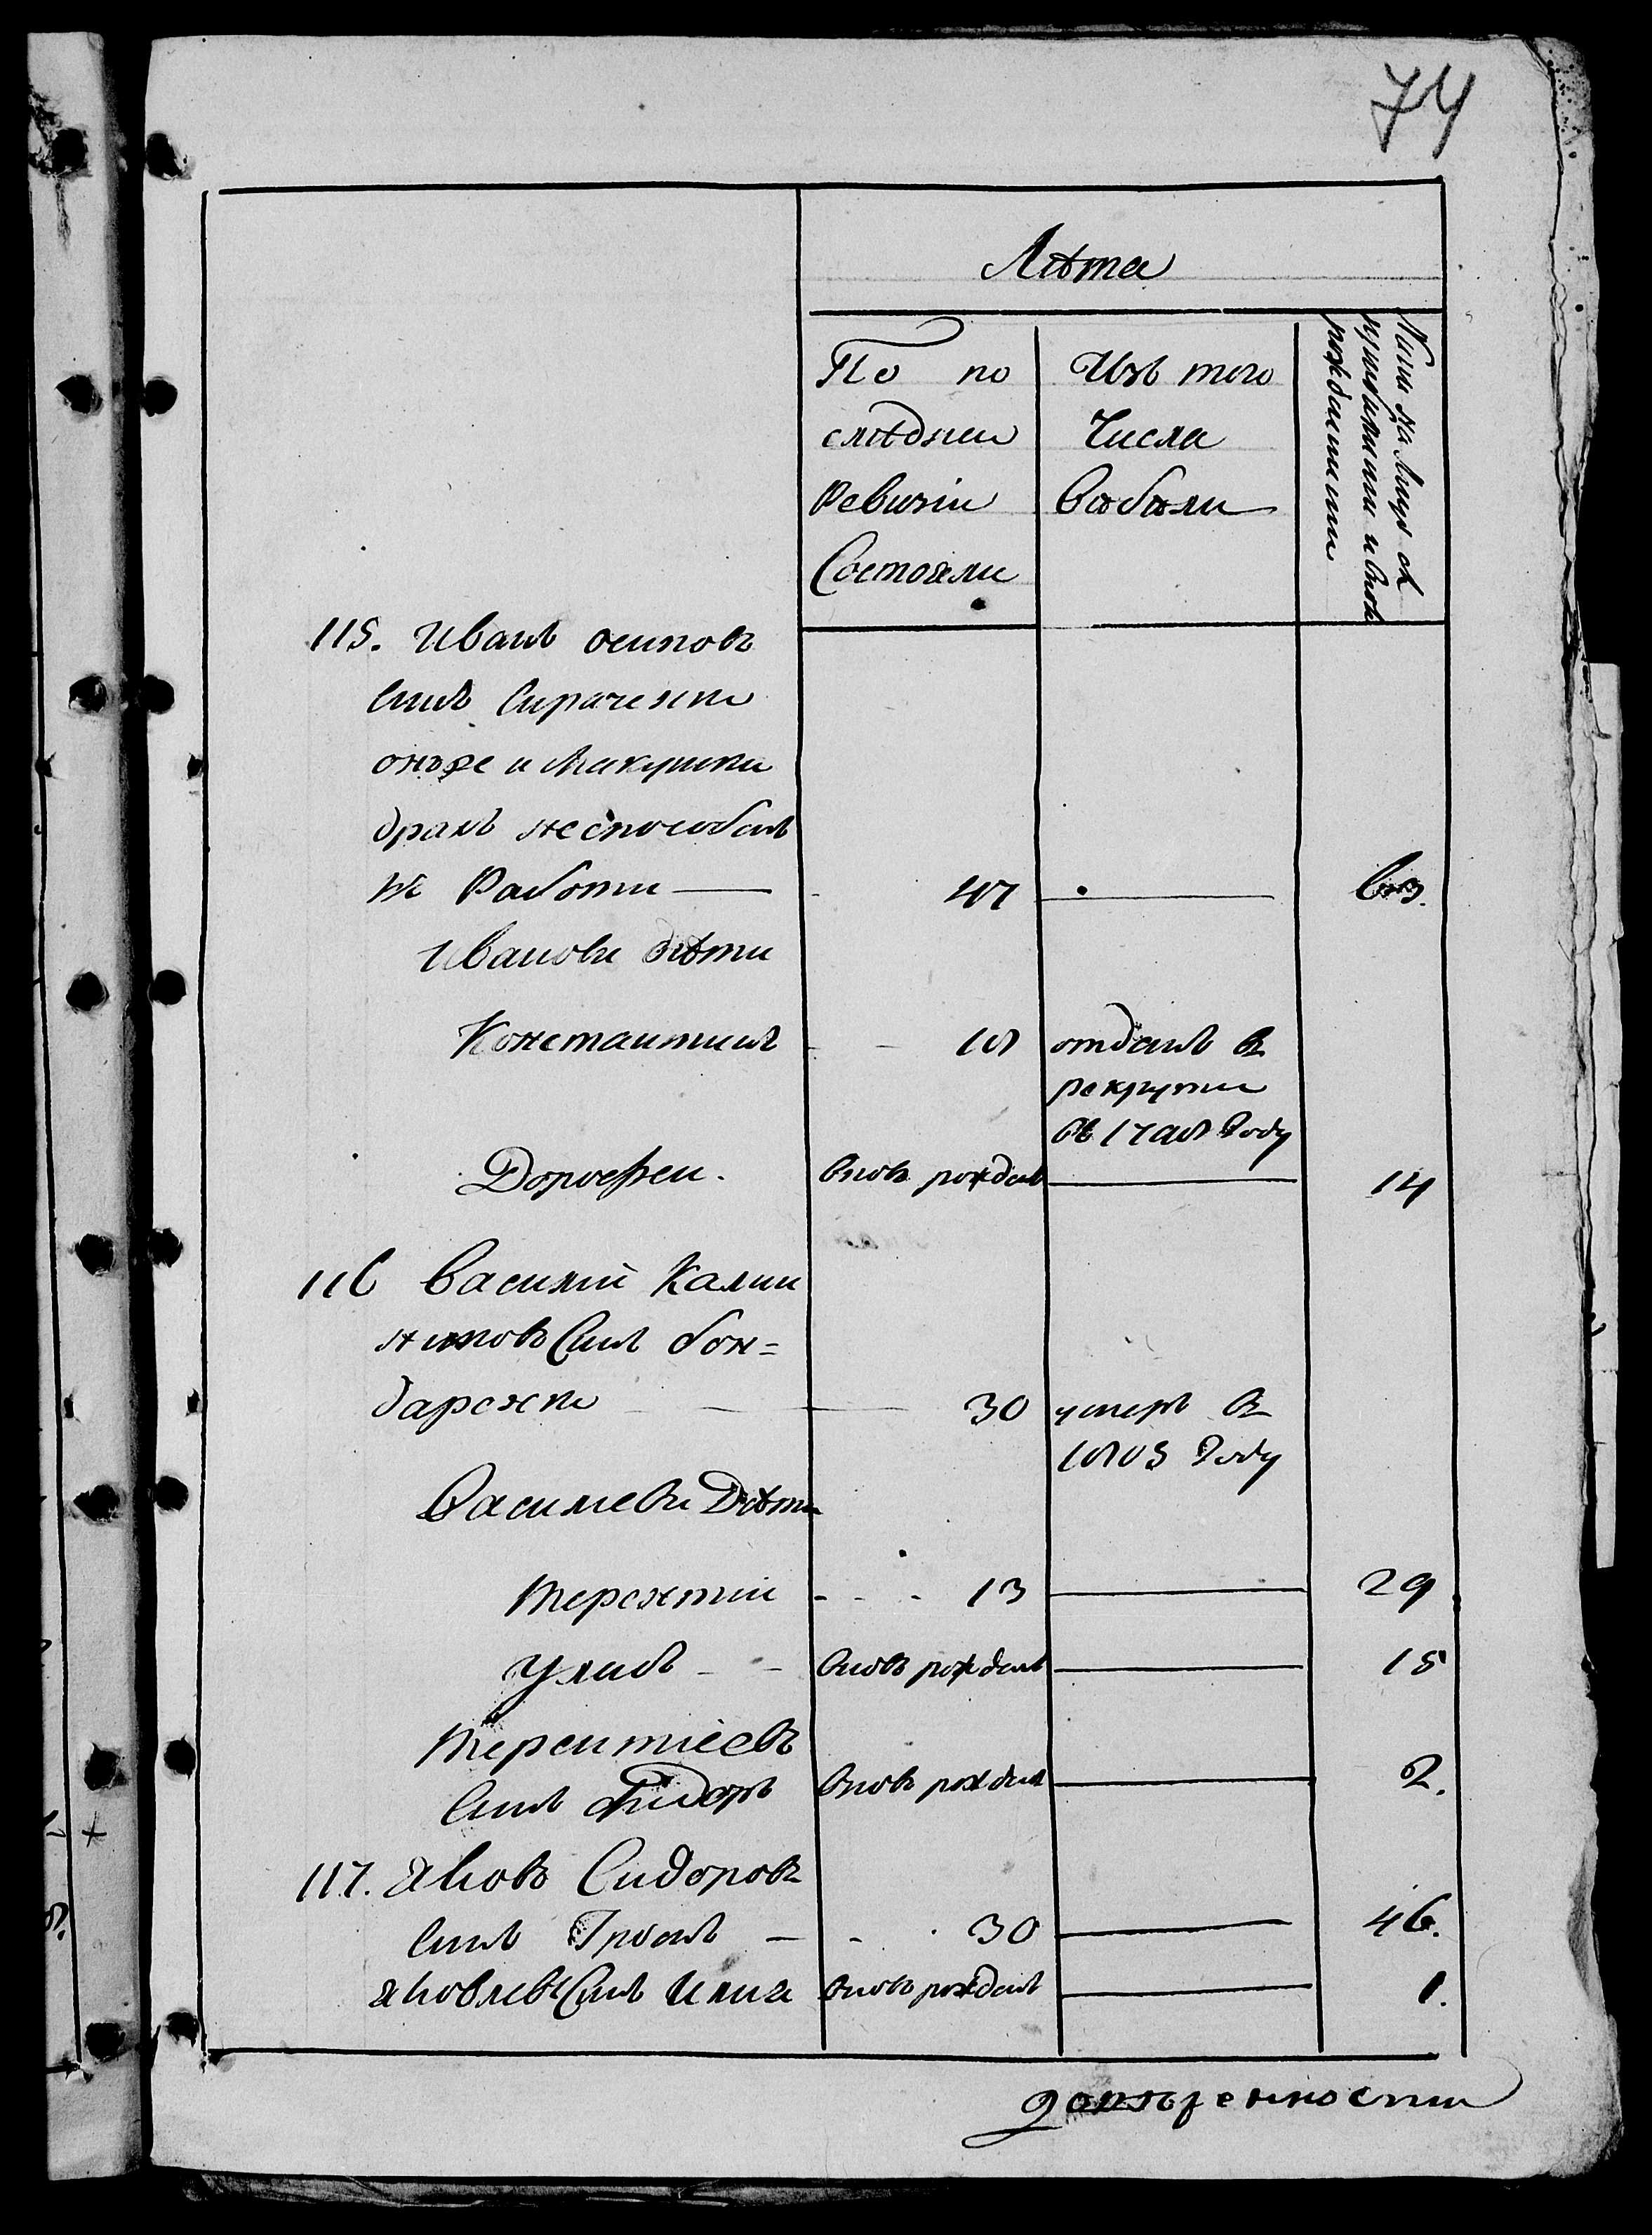 74
Лѣта
По по
слѣднеи
Ревизіи
Состояли
Изъ того
Числа
Выбыли
Нынѣ на лицо съ
прибылыми и вновь
рожденными
115. Иванъ осиповъ
Сынъ Сираченко
онъже и Макушка
дранъ неспособенъ
къ Работи 47 63.
Ивановы дѣти
Константинъ 18 отданъ въ
рекруты
въ 1798 Году
Дорофеи. вновь рожденъ 14
116 Василій Калин
никовъ Сынъ бон=
даренко 30 умеръ въ
1805 Году
Василиеви Дѣти
Терентіи 13 29
Улиѣ вновь рожденъ 15
Терентіевъ
Сынъ Фидоръ вновь рожденъ 2.
117. Яковъ Сидоровъ
Сынъ Гроснъ 30 46.
Яковлевъ Сынъ Илия вновь рожденъ 1.